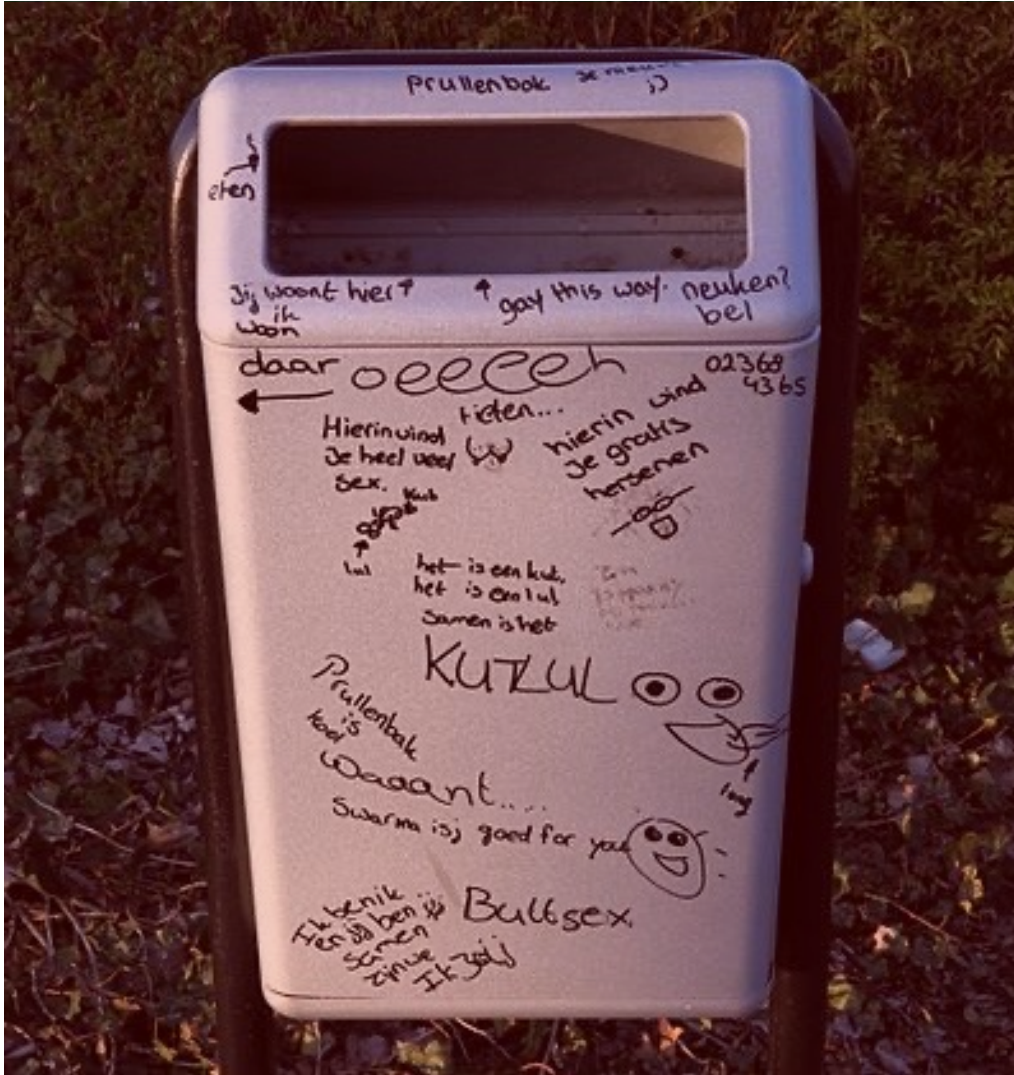 Prullenbak
;)
eten
Jij woont hier
ik
woon
daar
gay this way.
neuken?
bel
02368
4365
oeeeeeh
tieten...
Hierin vind
Je heel veel
sex.
kut
lul
hierin vind
Je gratis
hersenen
het is een kut,
het is een lul
Samen is het
KUTLUL
Prullenbak
is
kool
Waaant....
Swarma isj goed for you
Ik ben ik
en jij ben jij
samen
zijn we
Ik zijj
Buttsex